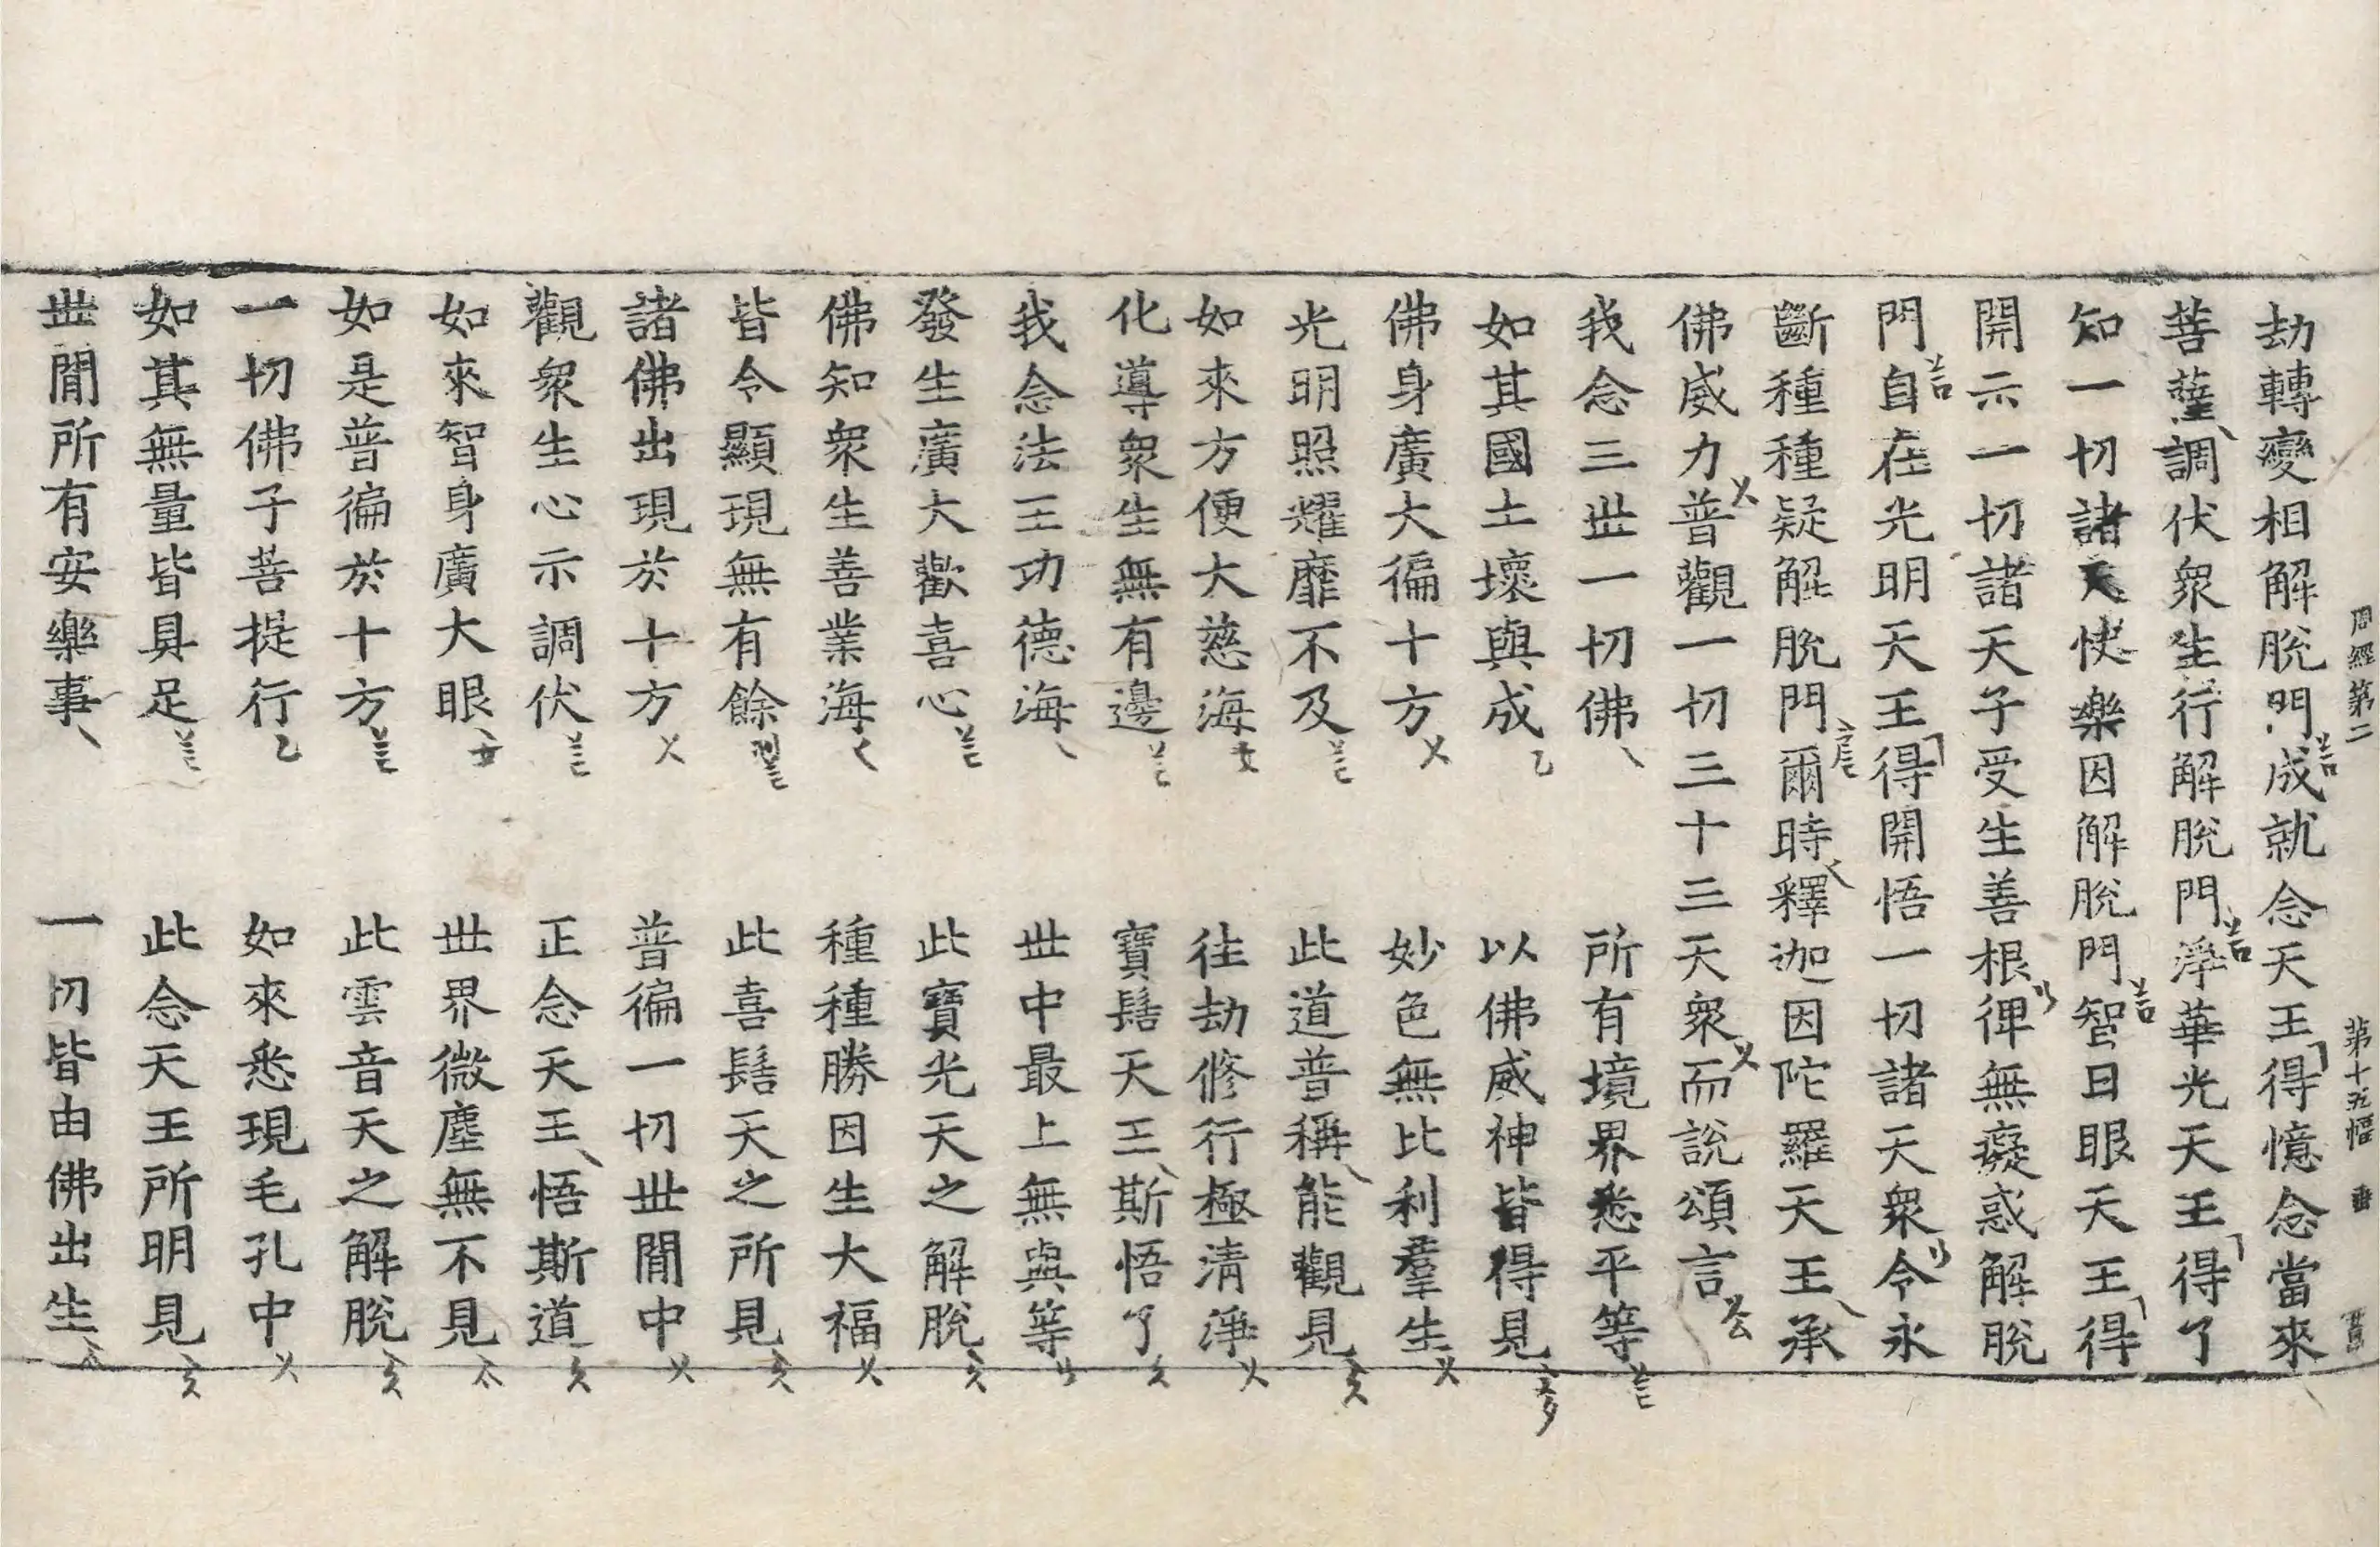 周經第二 第十五幅
劫轉變相解脫門成就念天王得憶念當來
菩薩調伏衆生行解脫門淨華光天王得了
知一切諸天快樂因解脫門智日眼天王得
開示一切諸天子受生善根俾無癡惑解脫
門自在光明天王得開悟一切諸天衆令永
斷種種疑解脫門爾時釋迦因陀羅天王承
佛威力普觀一切三十三天衆而說頌言
我念三世一切佛 所有境界悉平等
如其國土壞與成 以佛威神皆得見
佛身廣大徧十方 妙色無比利羣生
光明照耀靡不及 此道普稱能觀見
如來方便大慈海 往劫修行極淸淨
化導衆生無有邊 寶髻天王斯悟了
我念法王功德海 世中最上無與等
發生廣大歡喜心 此寶光天之解脫
佛知衆生善業海 種種勝因生大福
皆令顯現無有餘 此喜髻天之所見
諸佛出現於十方 普徧一切世閒中
觀衆生心示調伏 正念天王悟斯道
如來智身廣大眼 世界微塵無不見
如是普徧於十方 此雲音天之解脫
一切佛子菩提行 如來悉現毛孔中
如其無量皆具足 此念天王所明見
世閒所有安樂事 一切皆由佛出生